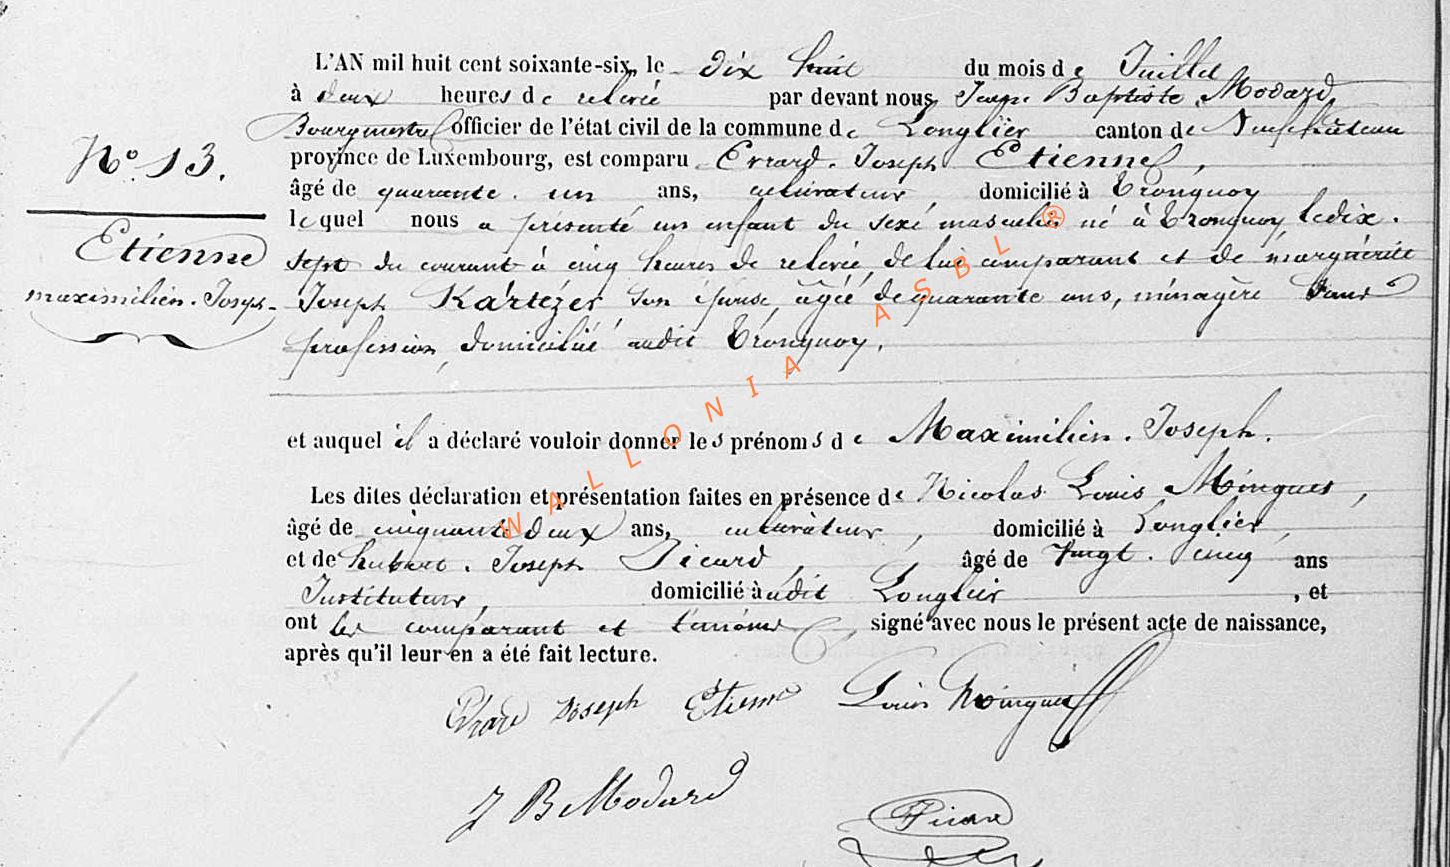 L'AN mil huit cent soixante-six, le dix huit du mois de Juillet
à deux heures de relevée par devant nous, Jean Baptiste Modard
Bourgmestre officier de l'état civil de la commune de Longlier canton de Neufchâteau
province de Luxembourg, est comparu Evrard. Joseph Etienne,
N° 13.
âgé de quarante. un ans, cultivateur, domicilié à Tronquoy
lequel nous a présenté un enfant du sexe masculin né à Tronquoy, le dix.
Etienne
sept du courant à cinq heures de relevée, de lui comparant et de marguerite
maximilien. Joseph.
Joseph Kartézer, son épouse, âgée de quarante ans, ménagère sans
profession, domicilié audit Tronquoy.
et auquel il a déclaré vouloir donner les prénoms de Maximilien. Joseph.
Les dites déclaration et présentation faites en présence de Nicolas Louis Mingues,
âgé de cinquante deux ans, cultivateur, domicilié à Longlier,
et de hubert. Joseph Picard, âgé de vingt. cinq ans
Instituteur, domicilié audit Longlier, et
ont les comparant et témoins signé avec nous le présent acte de naissance,
après qu'il leur en a été fait lecture.
Evrard Joseph Étienne Louis Mingues
J B Modard
Picard
WALLONIA ASBL ®